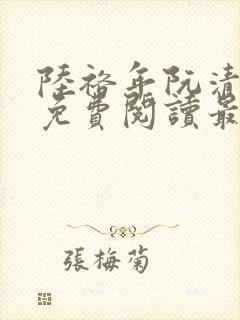 陸裕年阮清
免費閱讀最
張梅菊